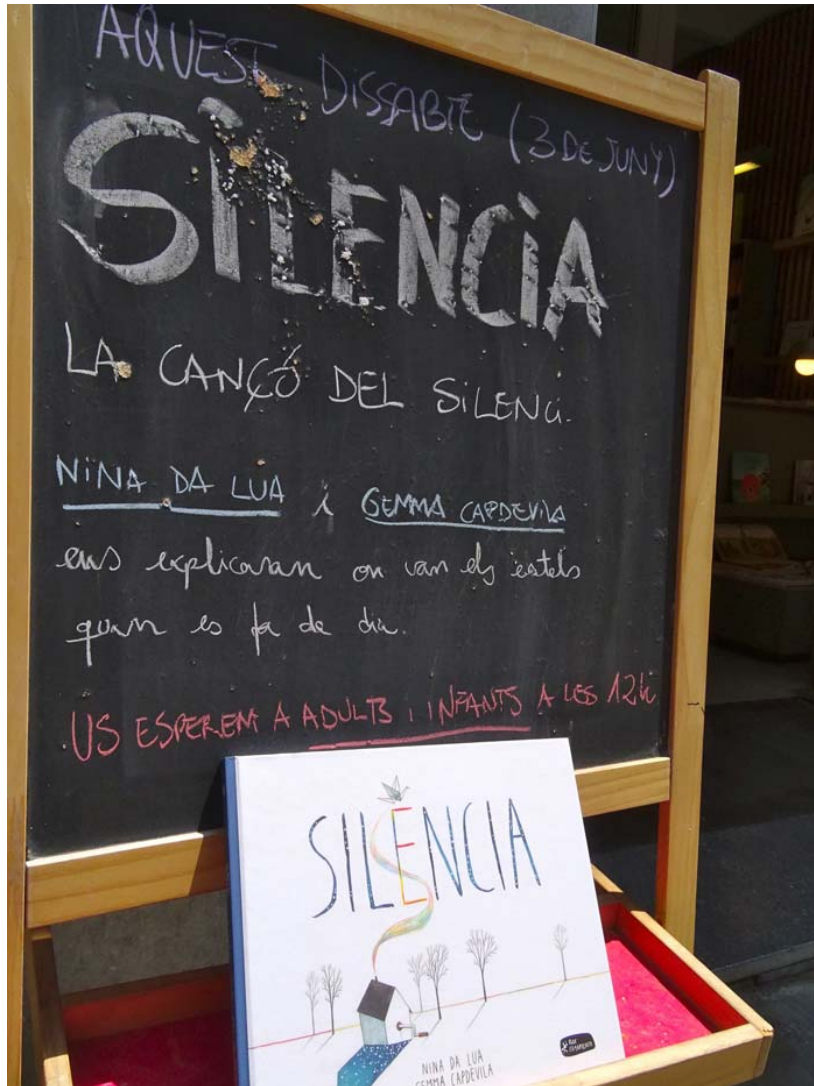 AQUEST DISSABTE (3 DE JUNY)
SiLENCiA
LA CANÇÓ DEL SiLENCi.
NiNA DA LUA i GEMMA CAPDEVILA
ens explicaran on van els estels
quan es fa de dia.
US ESPEREM A ADULTS i INFANTS A LES 12h
SILENCIA
NINA DA LUA
GEMMA CAPDEVILA